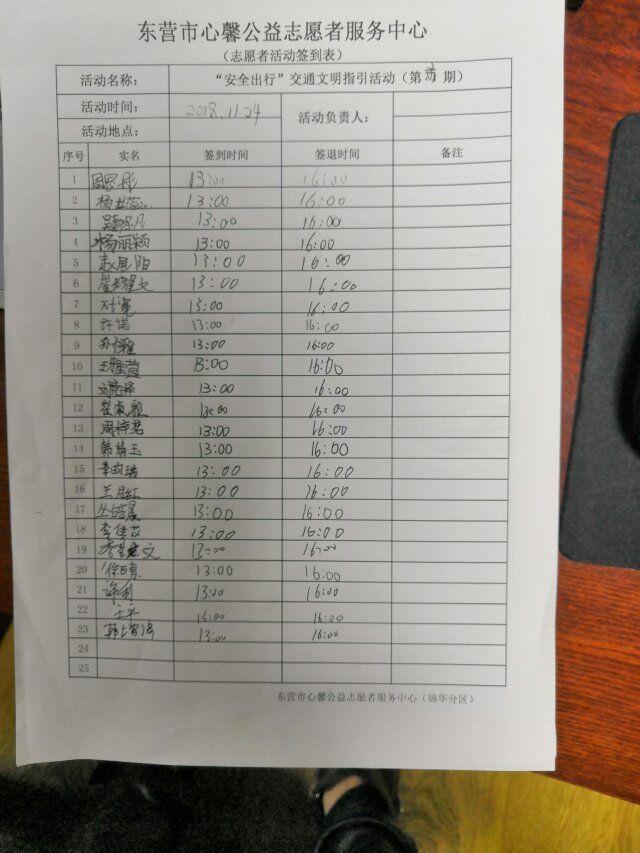 东营市心馨公益志愿者服务中心
（志愿者活动签到表）
活动名称： “安全出行”交通文明指引活动（第 期）
活动时间： 2018.11.24 活动负责人：
活动地点：
序号 实名 签到时间 签退时间 备注
1 13:00 16:00
2 杨 13:00 16:00
3 13:00 16:00
4 杨丽颖 13:00 16:00
5 赵展阳 13:00 16:00
6 13:00 16:00
7 13:00 16:00
8 许诺 13:00 16:00
9 13:00 16:00
10 13:00 16:00
11 13:00 16:00
12 崔 13:00 16:00
13 周梓君 13:00 16:00
14 韩精玉 13:00 16:00
15 李 13:00 16:00
16 王月红 13:00 16:00
17 丛 13:00 16:00
18 李佳 13:00 16:00
19 李 文 13:00 16:00
20 徐 13:00 16:00
21 13:00 16:00
22 13:00 16:00
23 韩 13:00 16:00
24
25
东营市心馨公益志愿者服务中心（锦华分区）